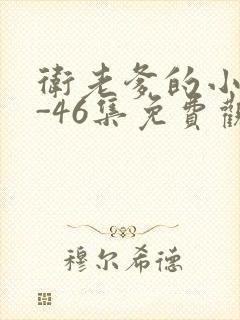 衛老爹的小
-46集免費觀
穆尔希德